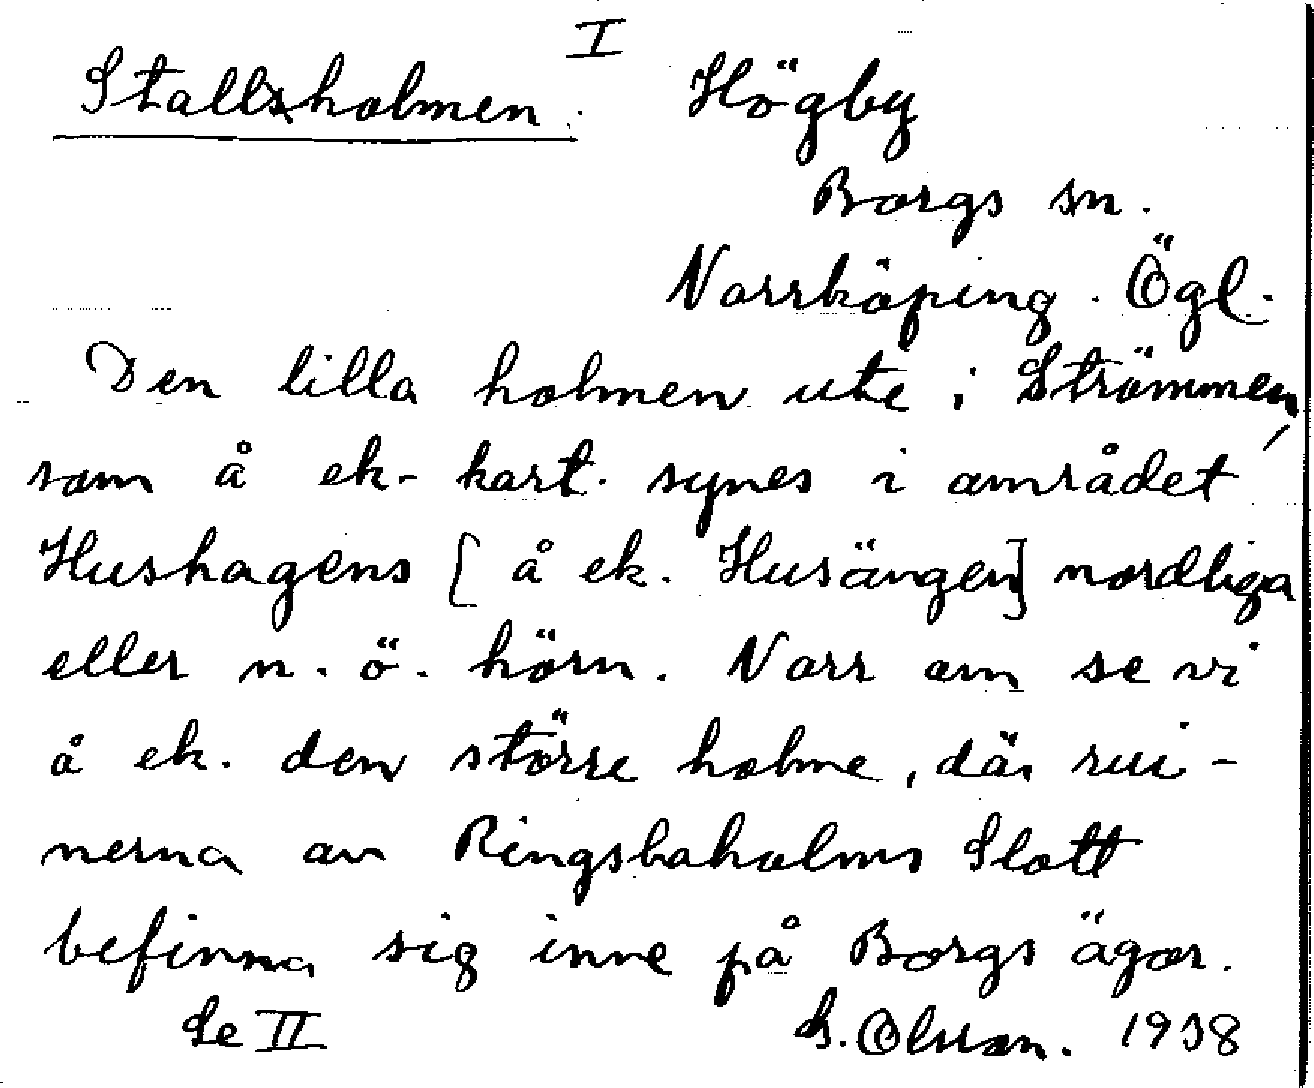 I
Stallholmen. Högby
Borgs sn.
Norrköping. Ögl.
Den lilla holmen ute i Strömmen,
som å ek-kart. synes i området
Hushagens [å ek. Husängen] nordliga
eller n. ö. hörn. Norr om se vi
å ek. den större holme, där rui-
nerna av Ringstaholms Slott
befinna sig inne på Borgs ägor.
Se II G. Olsson. 1938